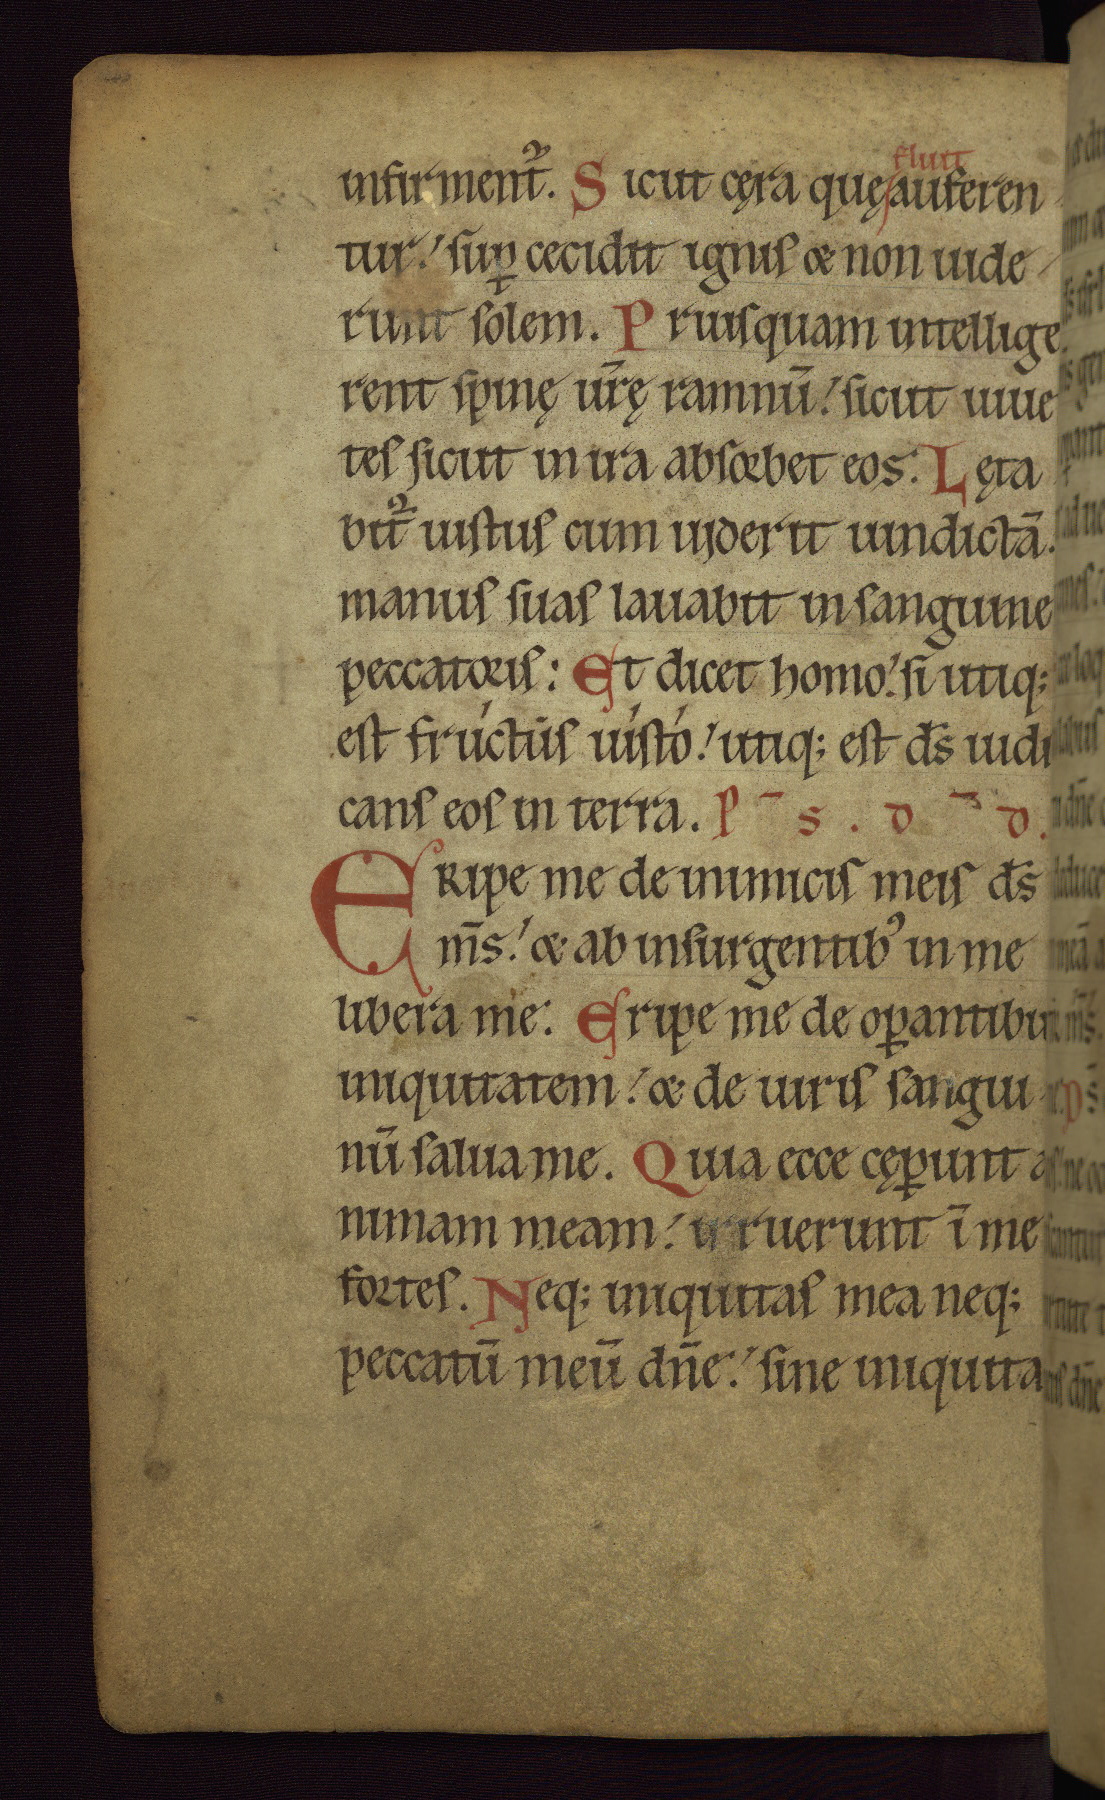 fluit
infirmenť. Sicut cęra quę auferen
tur! suꝑ cecidit ignis & non uide
runt solem. Priusquam intellige
rent spinę ur̄ę ramnū! sicut uiue
tes sicut in ira absorbet eos. Lęta
bit᷑ iustus cum uiderit uindictā.
manus suas lauabit in sanguine
peccatoris: Et dicet homo! si utiq;
est frúctus iústó! utiq; est d̄s iudi
cans eos in terra. P ̄ s . D ̄ D.
ERipe me de inimicis meis d̄s
m̄s! & ab insurgentibꝰ in me
libera me. Eripe me de oꝑantibu
iniquitatem! & de uiris sangui
nū salua me. Quia ecce cęꝑunt a
nimam meam! irruerunt ī me
fortes. Neq; iniquitas mea neq;
peccatū meū dn̄e! sine iniquita